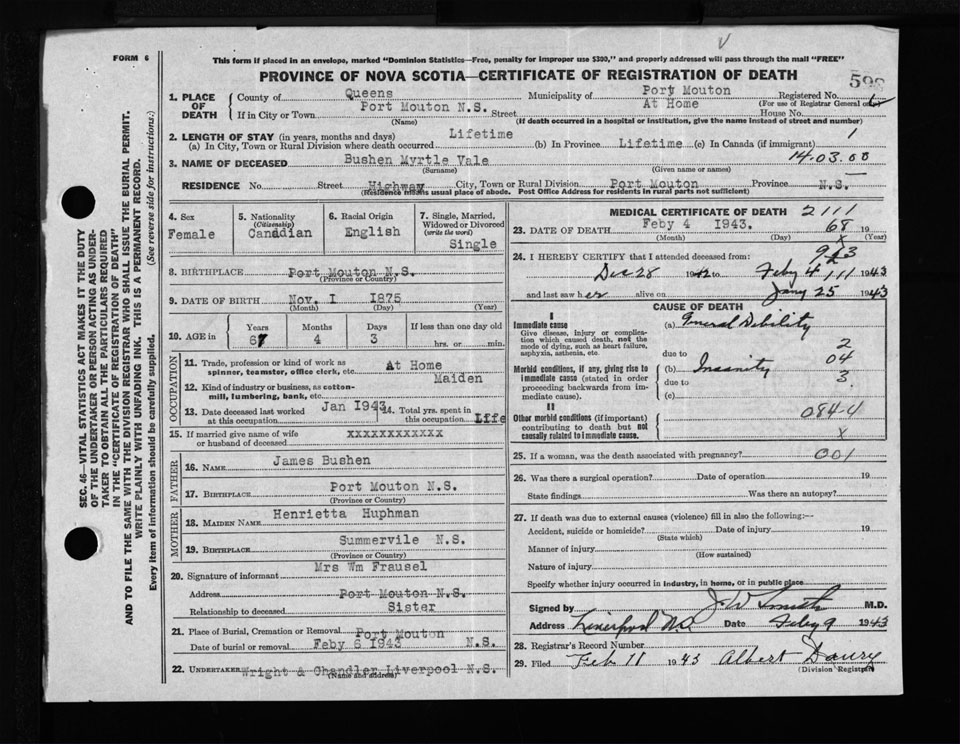 FORM 6
This form if placed in an envelope, marked "Dominion Statistics—Free, penalty for improper use $300," and properly addressed will pass through the mail "FREE"
PROVINCE OF NOVA SCOTIA—CERTIFICATE OF REGISTRATION OF DEATH
598
1. PLACE OF DEATH County of Queens Municipality of Port Mouton Registered No.
(For use of Registrar General only)
If in City or Town Port Mouton N.S. Street At Home House No.
(Name) (If death occurred in a hospital or institution, give the name instead of street and number)
2. LENGTH OF STAY (in years, months and days)
(a) In City, Town or Rural Division where death occurred Lifetime (b) In Province Lifetime (c) In Canada (if immigrant) 1
3. NAME OF DECEASED Bushen Myrtle Vale 14.03.00
(Surname) (Given name or names)
RESIDENCE No. Street Highway City, Town or Rural Division Port Mouton Province N.S.
(Residence means usual place of abode. Post Office Address for residents in rural parts not sufficient)
4. Sex
Female
5. Nationality
(Citizenship)
Canadian
6. Racial Origin
English
7. Single, Married, Widowed or Divorced
(write the word)
Single
8. BIRTHPLACE Port Mouton N.S.
(Province or Country)
9. DATE OF BIRTH Nov. I I875
(Month) (Day) (Year)
10. AGE in Years Months Days If less than one day old
67 4 3 hrs. or min.
OCCUPATION
11. Trade, profession or kind of work as spinner, teamster, office clerk, etc. At Home
12. Kind of industry or business, as cotton-mill, lumbering, bank, etc. Maiden
13. Date deceased last worked at this occupation Jan I943 14. Total yrs. spent in this occupation Life
15. If married give name of wife or husband of deceased xxxxxxxxxxxx
FATHER
16. NAME James Bushen
17. BIRTHPLACE Port Mouton N.S.
(Province or Country)
MOTHER
18. MAIDEN NAME Henrietta Huphman
19. BIRTHPLACE Summervile N.S.
(Province or Country)
20. Signature of informant Mrs Wm Frausel
Address Port Mouton N.S.
Relationship to deceased Sister
21. Place of Burial, Cremation or Removal Port Mouton
Date of burial or removal Feby 6 I943 N.S.
22. UNDERTAKER Wright & Chandler Liverpool N.S.
(Name and address)
MEDICAL CERTIFICATE OF DEATH 2111
23. DATE OF DEATH Feby 4 I943. 68 19
(Month) (Day) (Year)
X
24. I HEREBY CERTIFY that I attended deceased from:
Dec 28 1942 to Feby 4 1943
and last saw her alive on Jany 25 1943
CAUSE OF DEATH
I
Immediate cause
Give disease, injury or complication which caused death, not the mode of dying, such as heart failure, asphyxia, asthenia, etc.
(a) General Debility
due to 2
Morbid conditions, if any, giving rise to immediate cause (stated in order proceeding backwards from immediate cause).
(b) Insanity 04
due to 3
(c)
II
Other morbid conditions (if important) contributing to death but not causally related to immediate cause.
084-4
X
25. If a woman, was the death associated with pregnancy? 001
26. Was there a surgical operation? Date of operation 19
State findings Was there an autopsy?
27. If death was due to external causes (violence) fill in also the following:—
Accident, suicide or homicide? Date of injury 19
(State which)
Manner of injury
(How sustained)
Nature of injury
Specify whether injury occurred in industry, in home, or in public place
Signed by J. W. Smith M.D.
Address Liverpool N.S. Date Feby 9 1943
28. Registrar's Record Number
29. Filed Feb 11 1943 Albert Daury
(Division Registrar)
SEC. 46—VITAL STATISTICS ACT MAKES IT THE DUTY
OF THE UNDERTAKER OR PERSON ACTING AS UNDER-
TAKER TO OBTAIN ALL THE PARTICULARS REQUIRED
IN THE "CERTIFICATE OF REGISTRATION OF DEATH"
AND TO FILE THE SAME WITH THE DIVISION REGISTRAR WHO SHALL ISSUE THE BURIAL PERMIT.
WRITE PLAINLY WITH UNFADING INK. THIS IS A PERMANENT RECORD.
Every item of information should be carefully supplied. (See reverse side for instructions:)